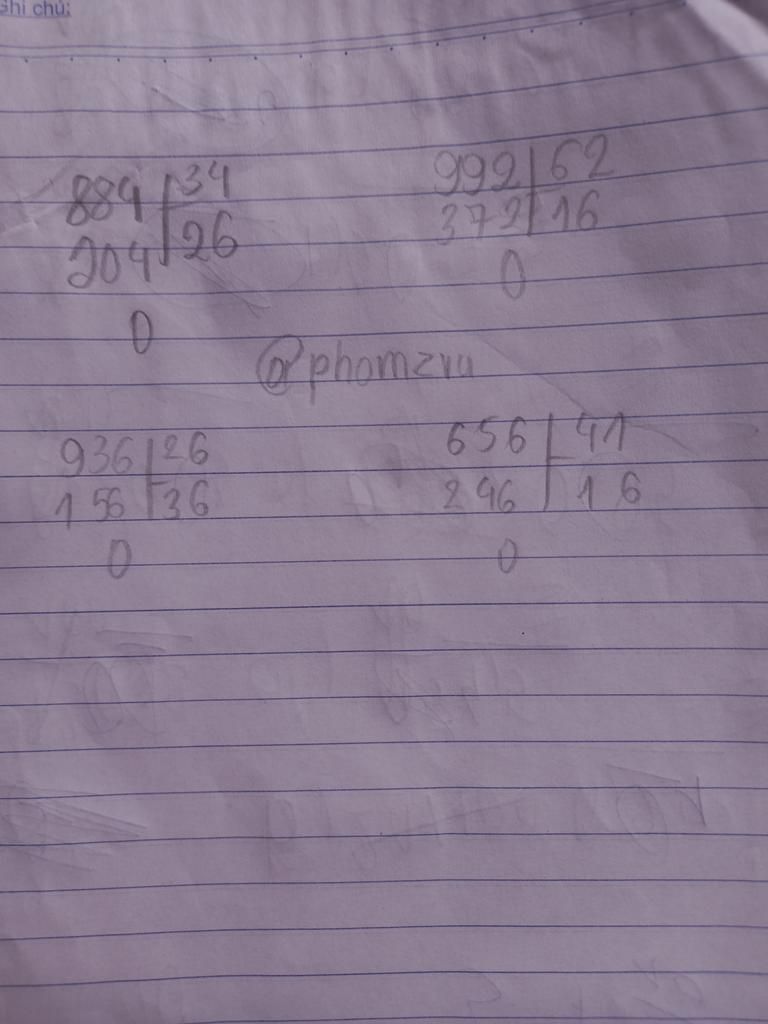 Ghi chú:
884 34
204 26
0
992 62
372 16
0
@phomzru
936 26
156 36
0
656 41
246 16
0